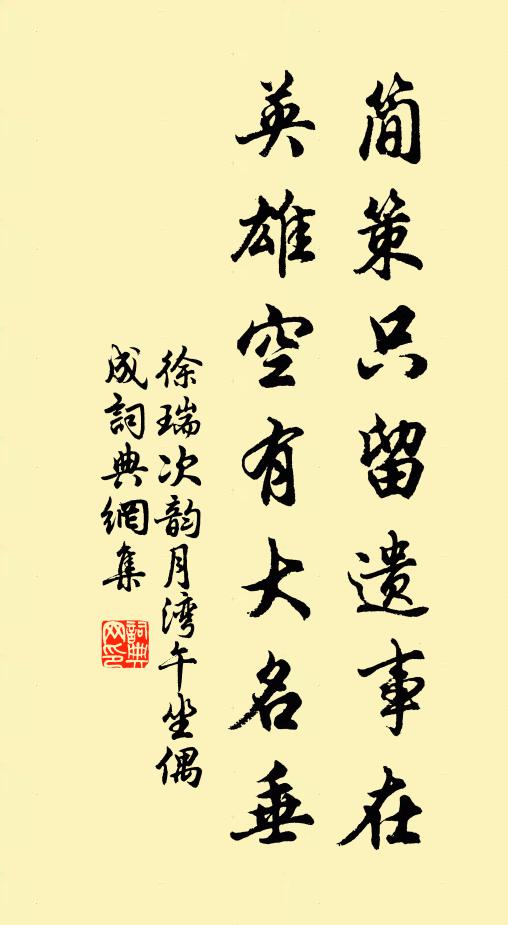 简策只留遗事在
英雄空有大名垂
徐瑞次韵月湾午坐偶
成詞典網集
詞典
网印